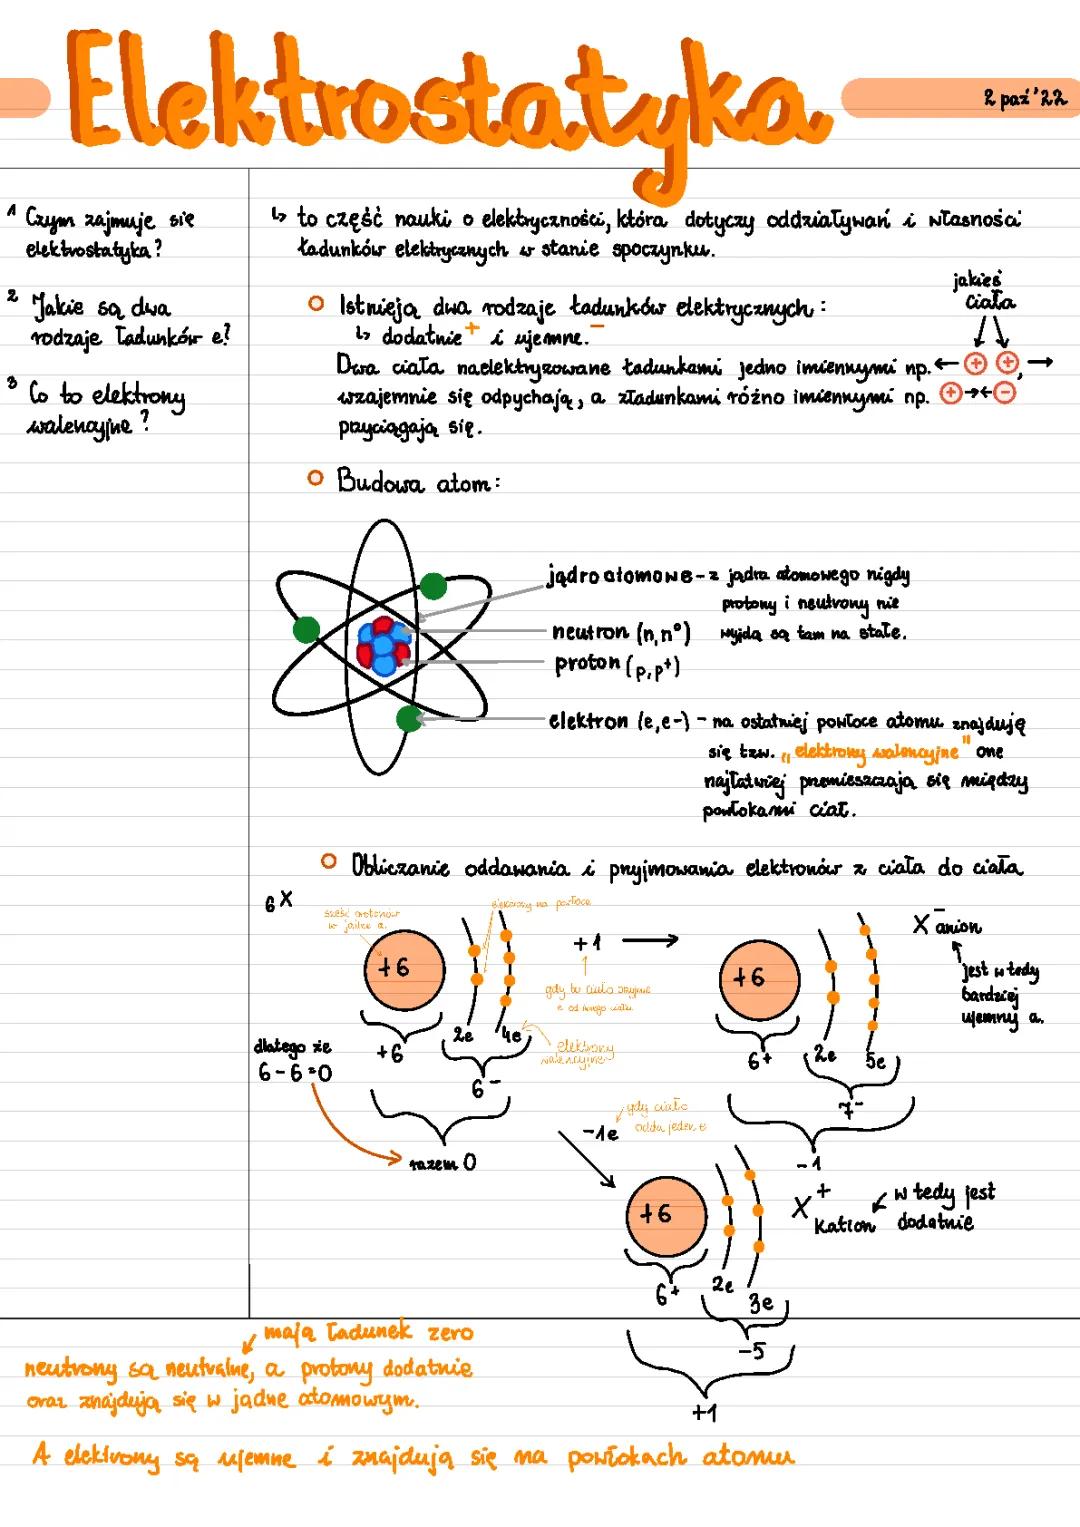 Elektrostatyka
2 paź'22
1 Czym zajmuje się
elektrostatyka?
2 Jakie są dwa
rodzaje ładunków e?
3 Co to elektrony
walencyjne?
↳ to część nauki o elektryczności, która dotyczy oddziaływań i własności
ładunków elektrycznych w stanie spoczynku.
Istnieją dwa rodzaje ładunków elektrycznych:
↳ dodatnie + i ujemne. -
jakieś
ciała
Dwa ciała naelektryzowane ładunkami jedno imiennymi np. ← + + , →
wzajemnie się odpychają, a ładunkami różno imiennymi np. + → ← -
przyciągają się.
Budowa atom:
jądro atomowe - z jądra atomowego nigdy
protony i neutrony nie
wyjdą są tam na stałe.
neutron (n,n°)
proton (p,p+)
elektron (e,e-) - na ostatniej powłoce atomu znajdują
się tzw. "elektrony walencyjne" one
najłatwiej przemieszczają się między
powłokami ciał.
Obliczanie oddawania i przyjmowania elektronów z ciała do ciała
6 X
sześć protonów
w jądrze a.
elektrony na powłoce
+6
+1 →
gdy to ciało przyjmie
e od innego ciała
+6
X- anion
jest wtedy
bardziej
ujemny a.
+6
2e
4e
elektrony
walencyjne
6-
dlatego że
6-6=0
razem 0
6+
2e
5e
7-
-1
-1e
gdy ciało
odda jeden e
+6
X+
Kation
wtedy jest
dodatnie
6+
2e
3e
-5
+1
mają ładunek zero
neutrony są neutralne, a protony dodatnie
oraz znajdują się w jądrze atomowym.
A elektrony są ujemne i znajdują się na powłokach atomu